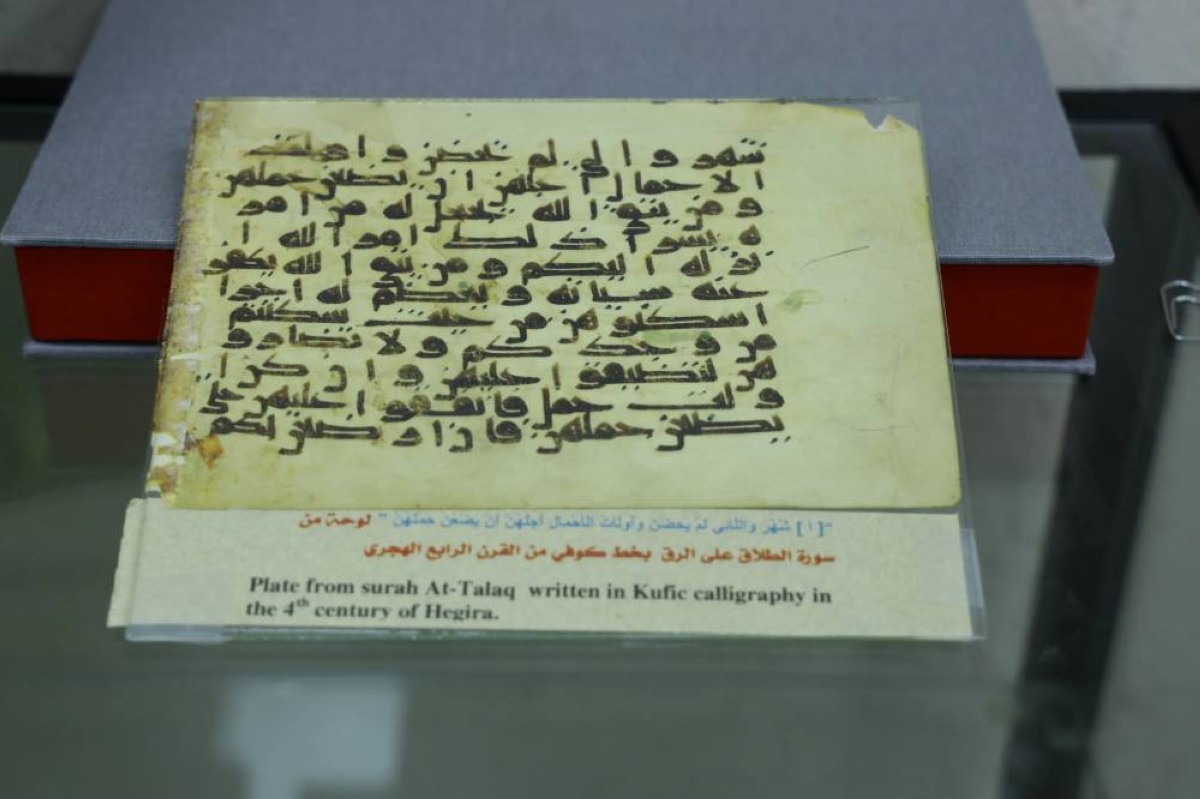 شهر والى لم يحضن واولت
الاحمال اجلهن ان يضعن حملهن
ومن يتق الله يجعل له من امر
ه يسرا ذلك امر الله ا
نزله اليكم ومن يتق الله يكفر
عنه سياته ويعظم له اجرا
اسكنوهن من حيث سكنتم
من وجدكم ولا تضارو
هن لتضيقوا عليهن وان كن ا
ولت حمل فانفقوا عليهن حتى
يضعن حملهن فان ارضعن لكم
"[أ] شَهْر واللَّائي لَمْ يَحِضْنَ وَأُولَاتُ الْأَحْمَالِ أَجَلُهُنَّ أَنْ يَضَعْنَ حَمْلَهُنَّ" لوحة من
سورة الطلاق على الرق بخط كوفي من القرن الرابع الهجري
Plate from surah At-Talaq written in Kufic calligraphy in
the 4th century of Hegira.